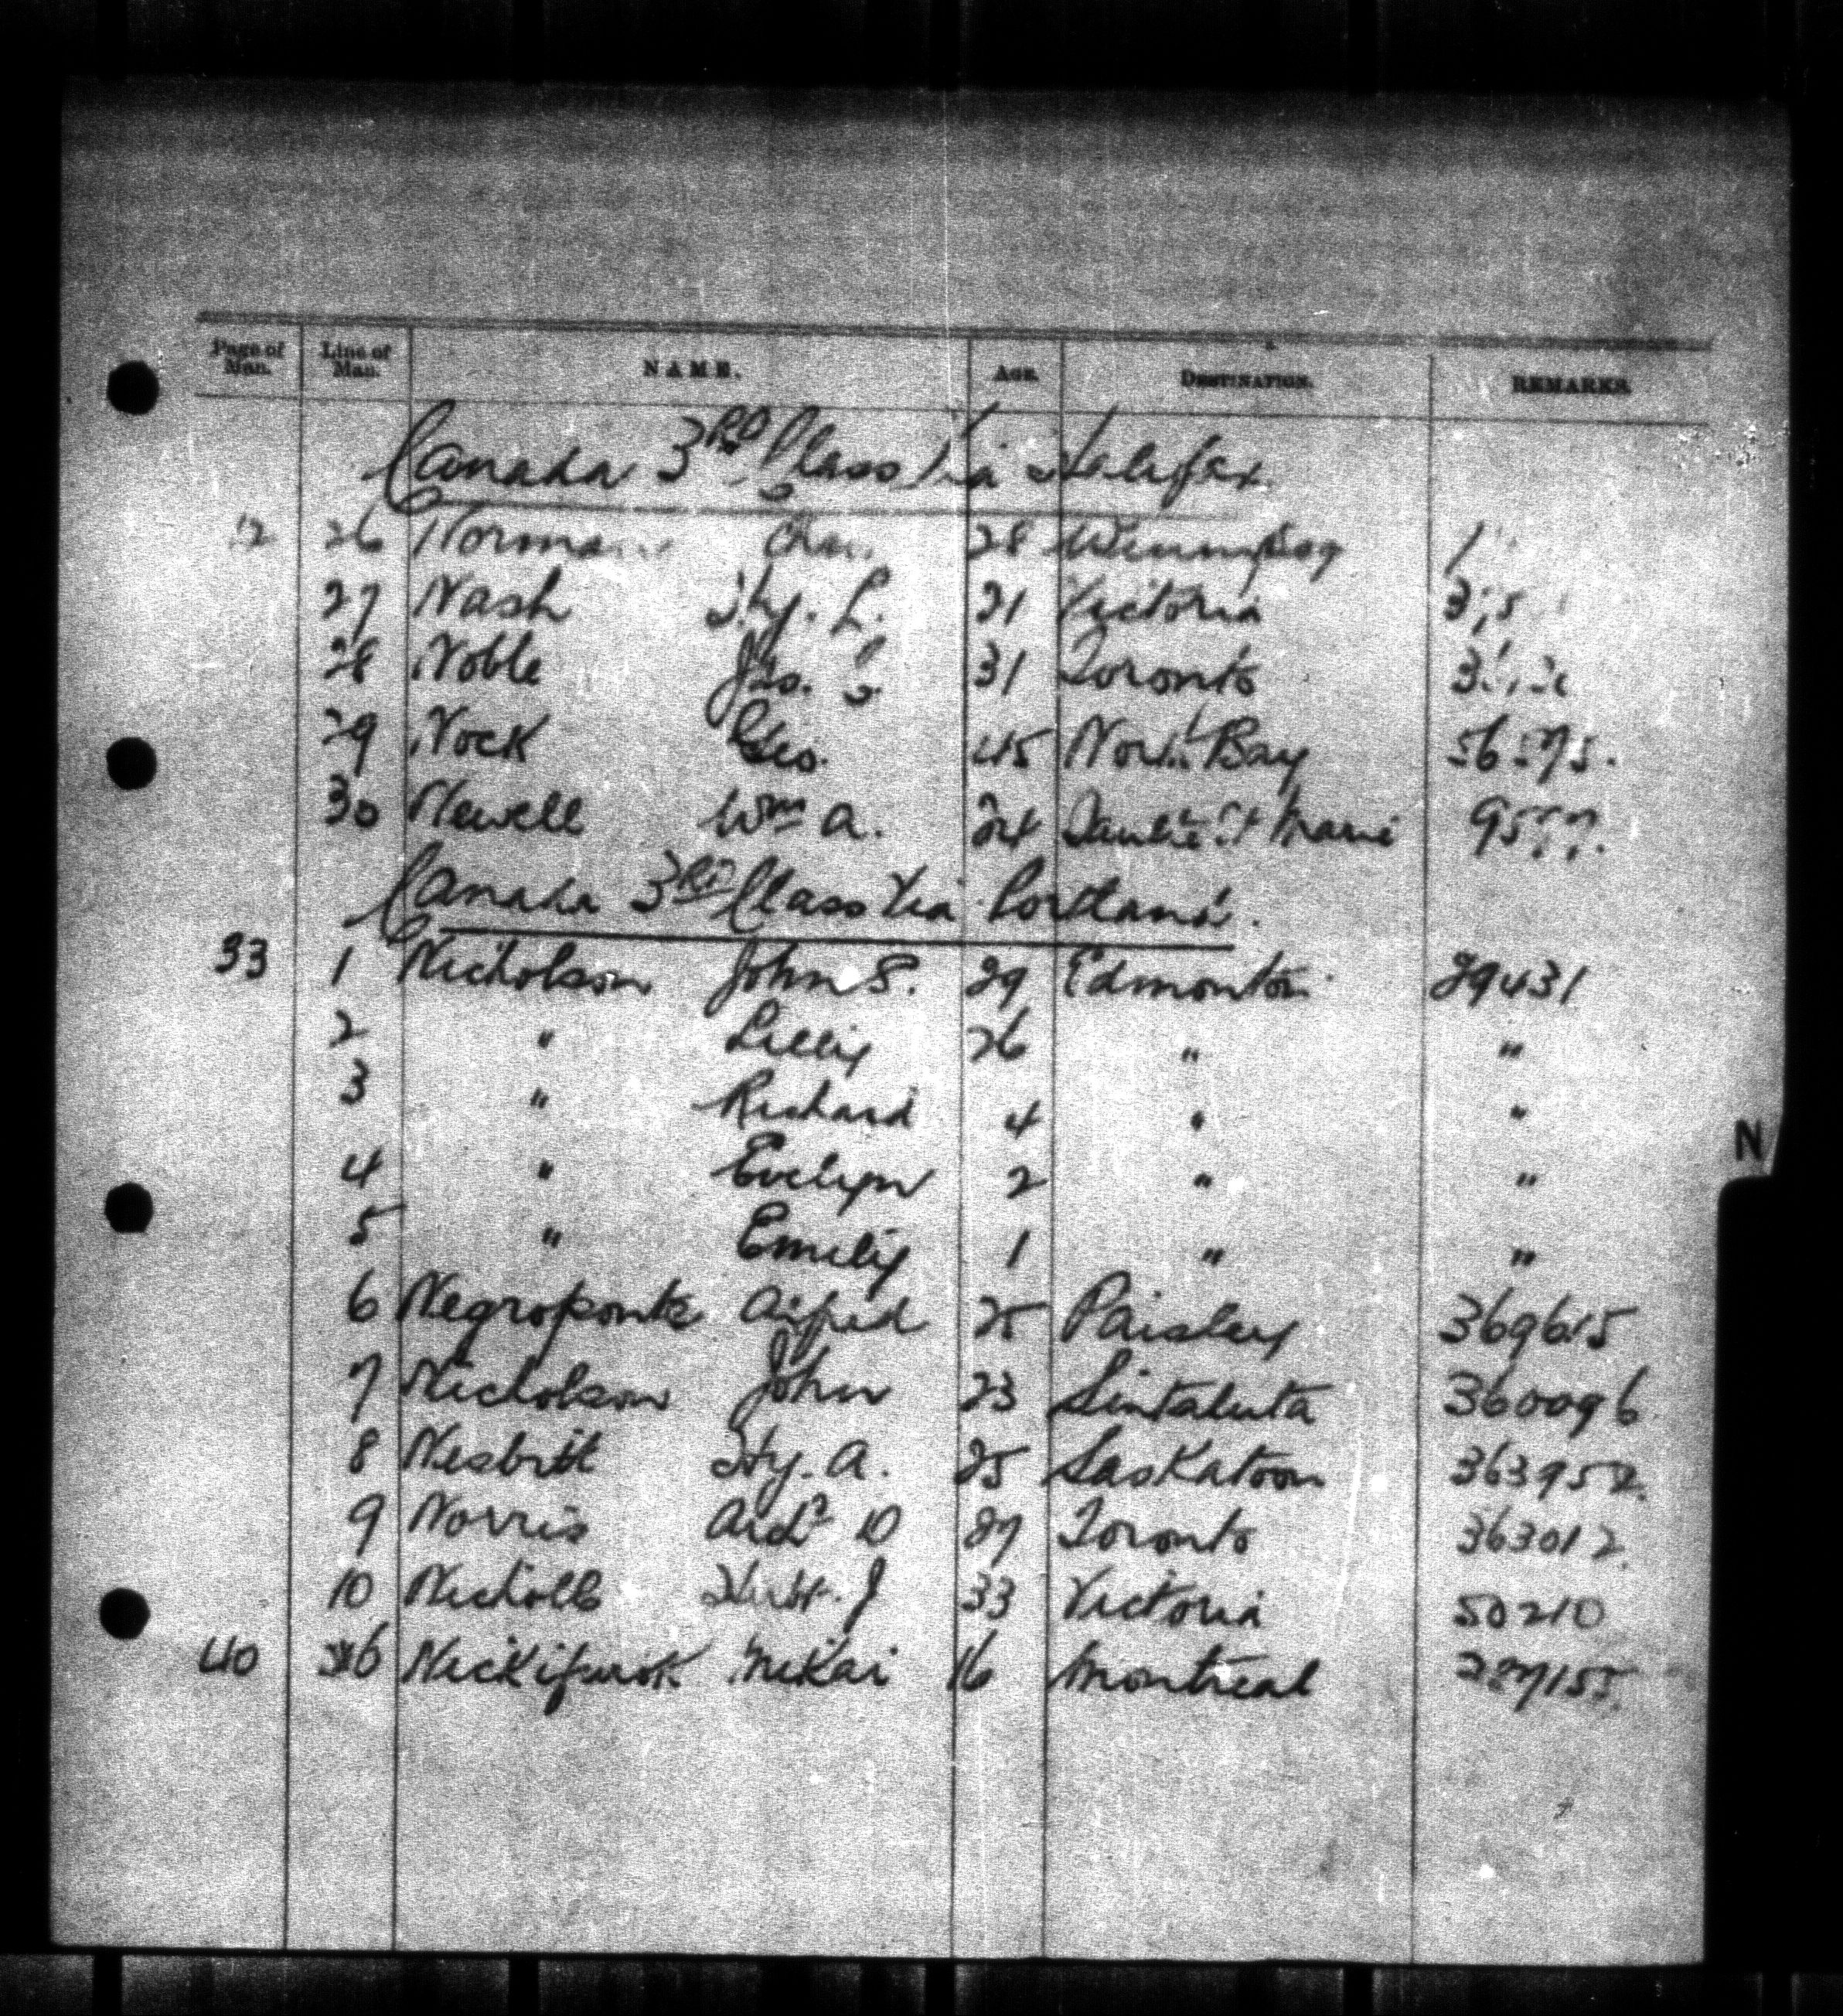 Page of Man. Line of Man. NAME. AGE. DESTINATION. REMARKS
Canada 3RD Class Via Halifax
12 26 28 Winnipeg
27 Nash Hy. L. 21 Victoria
28 Noble Jas. 31 Toronto
29 Nock Geo. 45 North Bay
30 Newell Wm A. 24 Sault St Marie
Canada 3RD Class Via Portland.
33 1 Nicholson John S. 29 Edmonton 29431
2 " Lilly 26 " "
3 " Richard 4 " "
4 " Evelyn 2 " "
5 " Emily 1 " "
6 Negroponte Alfred 25 Paisley 369615
N
7 Nicholson John 23 Sintaluta 360096
8 Nesbitt Hy. A. 25 Saskatoon 363952.
9 Norris Archd D 27 Toronto 363012.
10 Nicholls Herbt. J 33 Victoria 50210
40 Mikai 16 Montreal 287155.